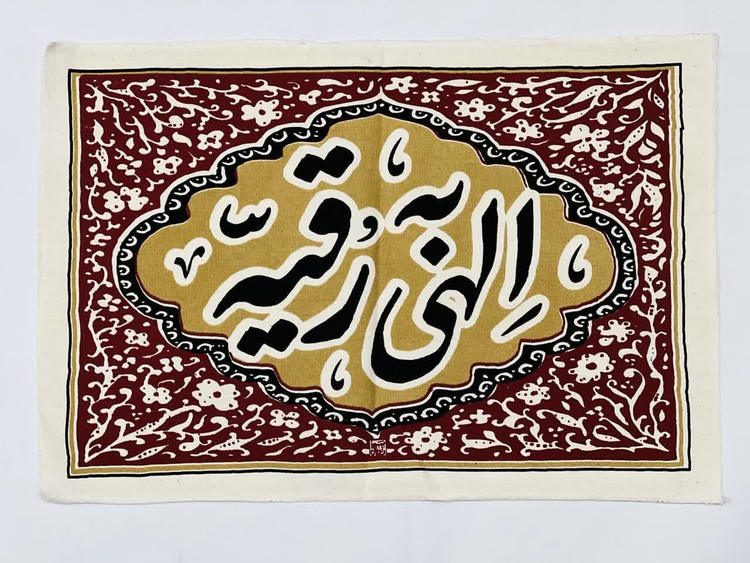 الهی به رقیه